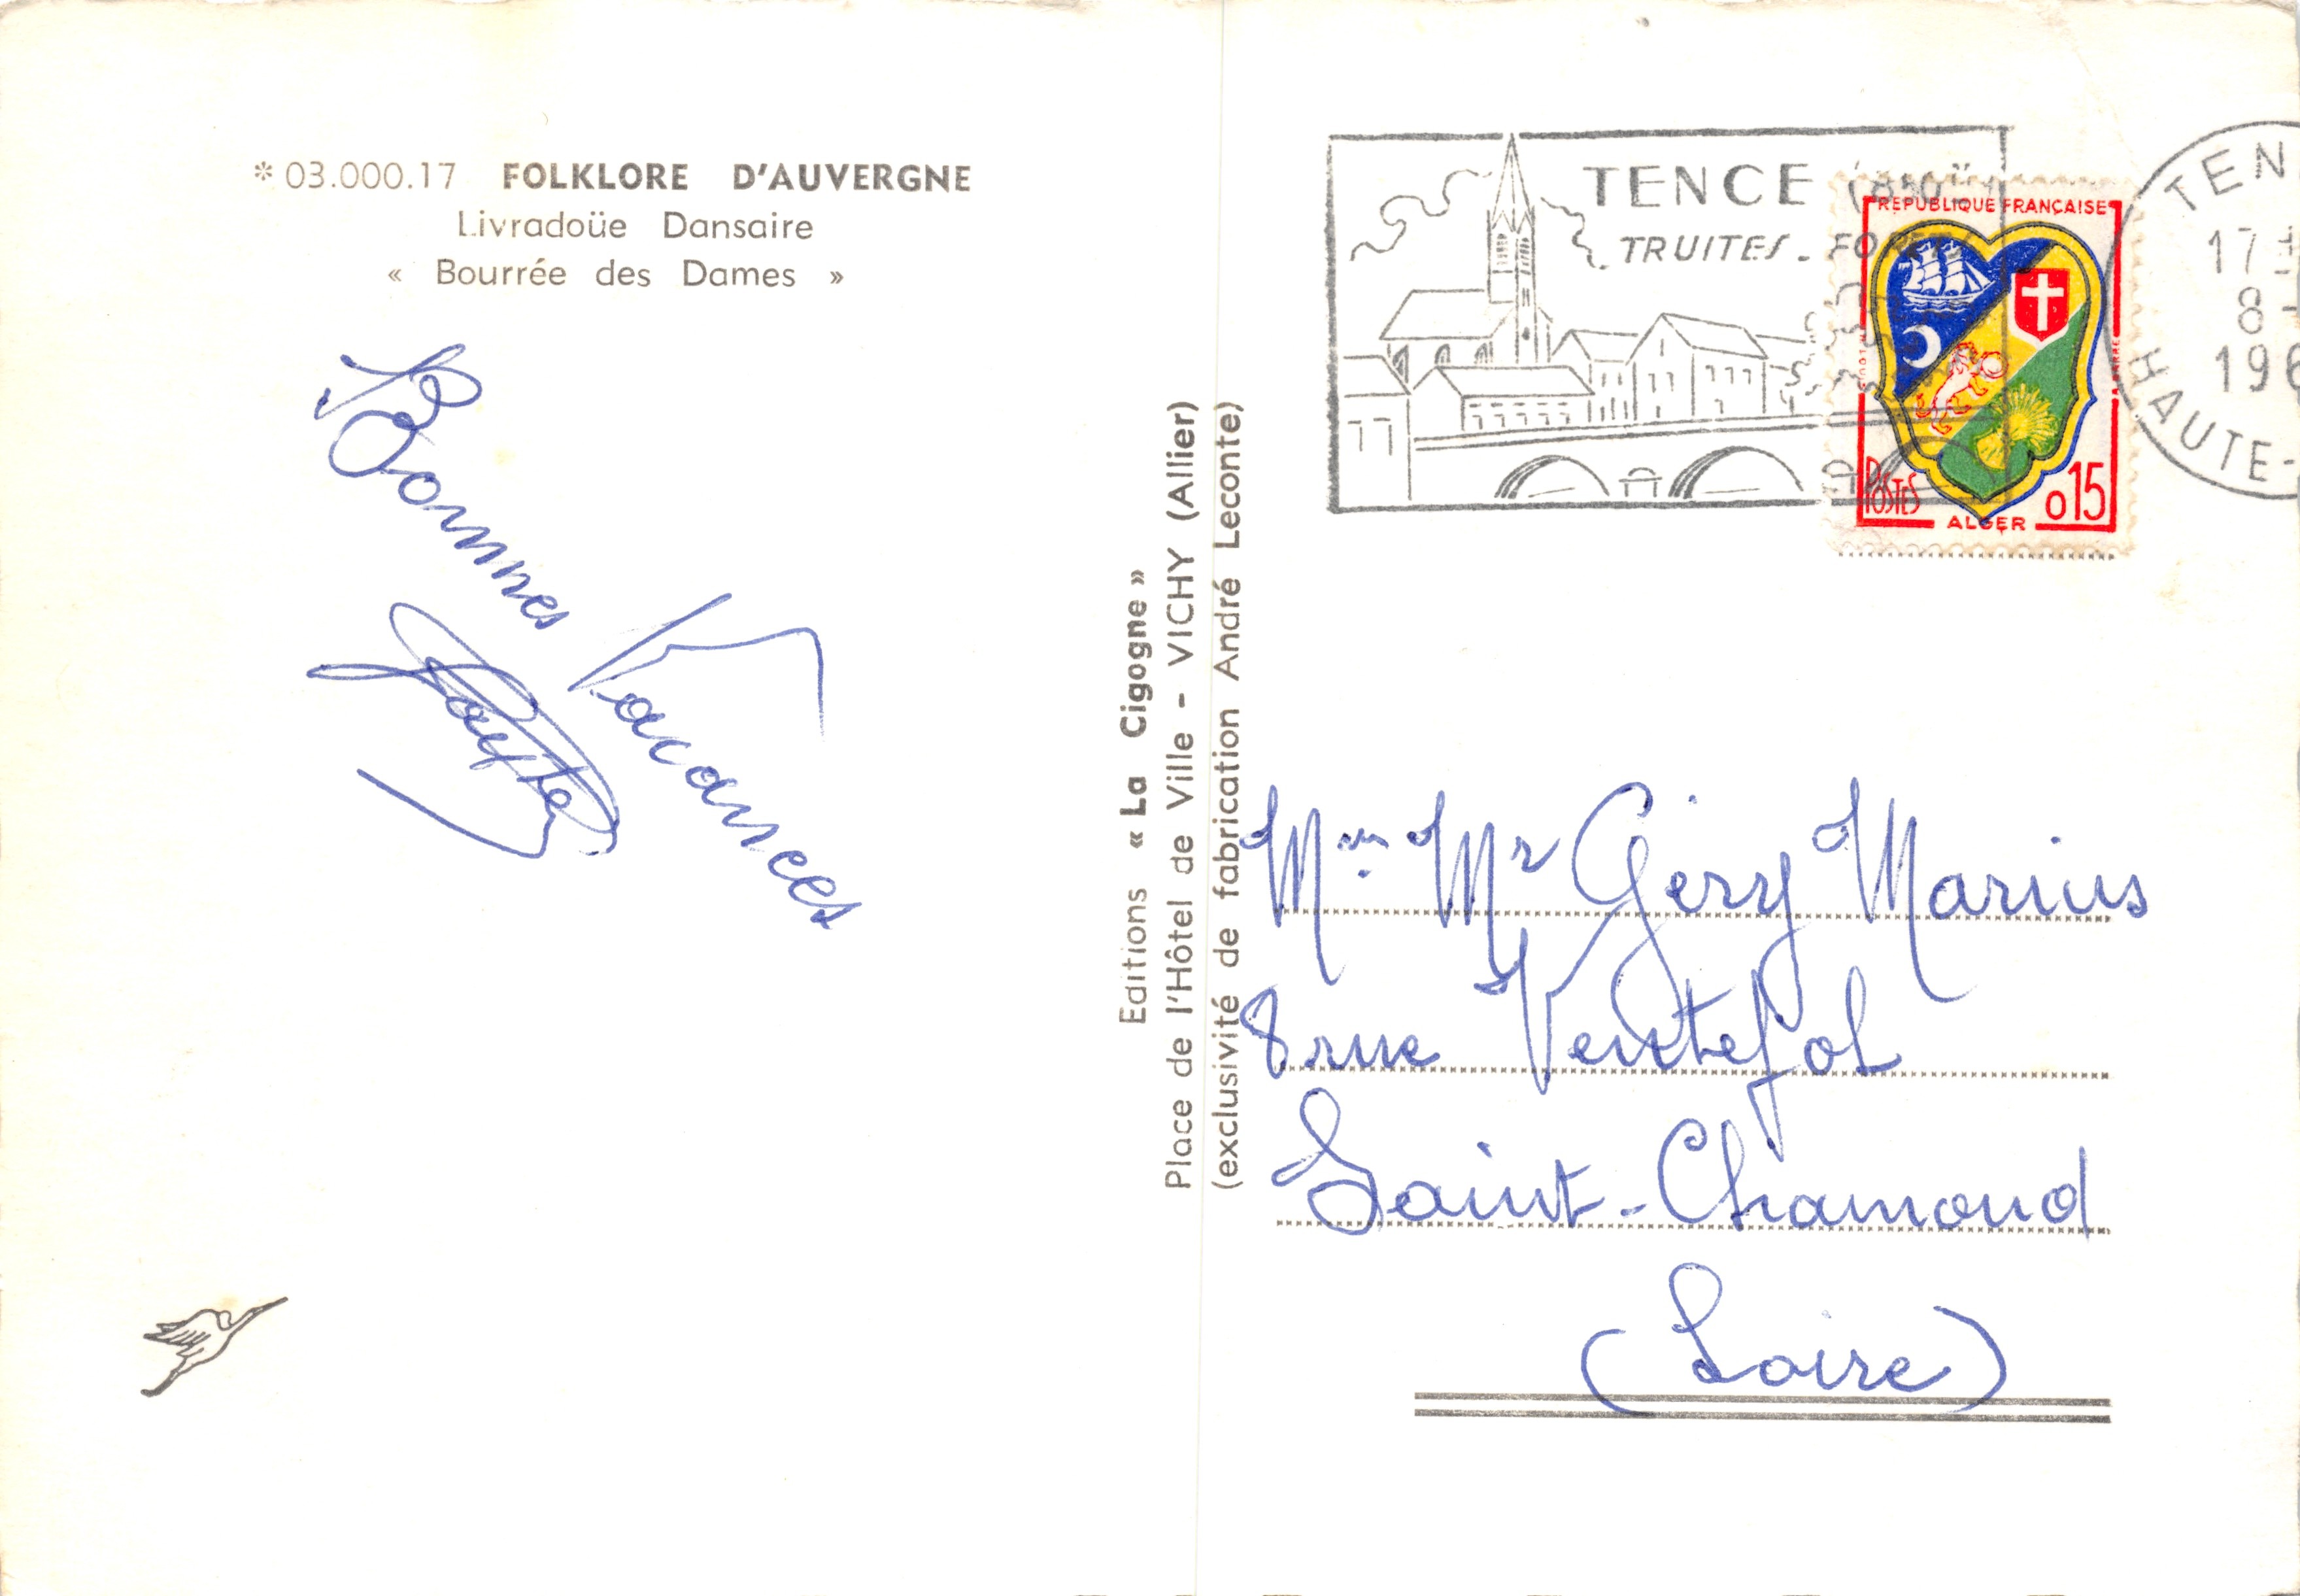 * 03.000.17 FOLKLORE D'AUVERGNE
Livradoüe Dansaire
« Bourrée des Dames »
Bonnes
Vacances
Editions « La Cigogne »
Place de l'Hôtel de Ville - VICHY (Allier)
(exclusivité de fabrication André Leconte)
TENCE
TRUITES - FORETS
REPUBLIQUE FRANÇAISE
POSTES
ALGER
0,15
TEN
17
8 -
196
HAUTE-
Mme Mr Géry Marius
8 rue Ventefol
Saint-Chamond
(Loire)